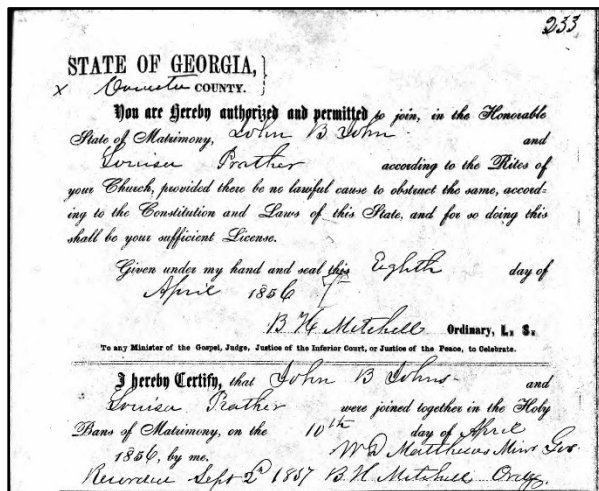 233
STATE OF GEORGIA,
x Coweta COUNTY.
You are Hereby authorized and permitted to join, in the Honorable
State of Matrimony, John B John and
Louisa Prather according to the Rites of
your Church, provided there be no lawful cause to obstruct the same, accord-
ing to the Constitution and Laws of this State, and for so doing this
shall be your sufficient License.
Given under my hand and seal this Eighth day of
April 1856
B H Mitchell Ordinary, L. S.
To any Minister of the Gospel, Judge, Justice of the Inferior Court, or Justice of the Peace, to Celebrate.
I hereby Certify, that John B Johns and
Louisa Prather were joined together in the Holy
Bans of Matrimony, on the 10th day of April
1856, by me. W D Matthews Minr Gos.
Recorded Sept 2d 1857 B. H. Mitchell Ordy.